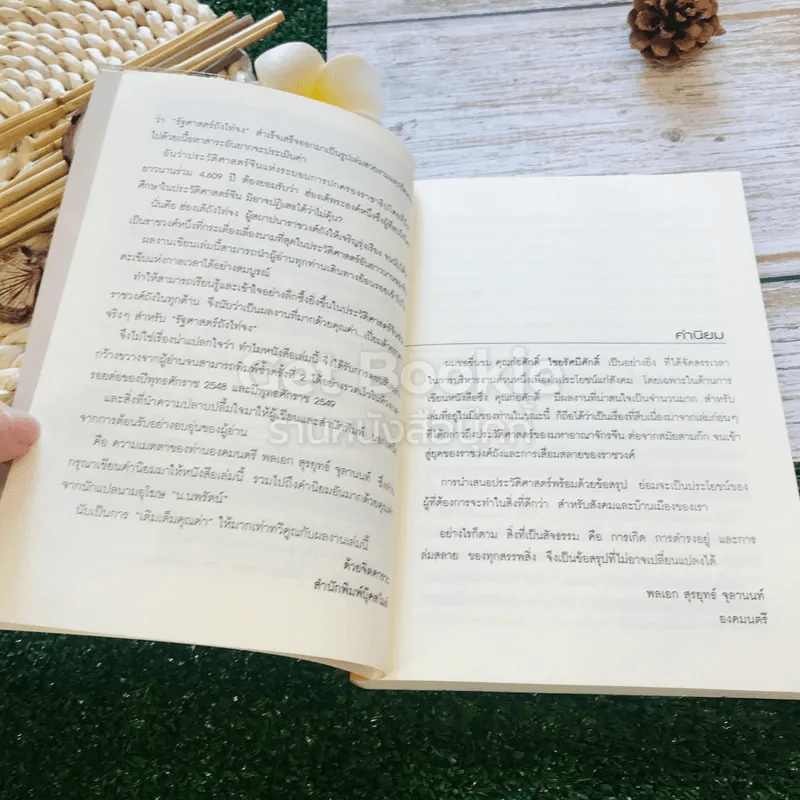 ว่า "รัฐศาสตร์ถังไท่จง" สำเร็จเสร็จออกมาเป็นรูปเล่มสวยงาม
ไปด้วยเนื้อหาสาระอันยากจะประเมินค่า
อันว่าประวัติศาสตร์จีนแห่งระบอบการปกครอง
ยาวนานร่วม 4,609 ปี ต้องยอมรับว่า ฮ่องเต้พระองค์หนึ่งซึ่ง
ศึกษาในประวัติศาสตร์จีน มิอาจปฏิเสธได้ว่าไม่คุ้น?
นั่นคือ ฮ่องเต้ถังไท่จง ผู้สถาปนาราชวงศ์ถังให้เจริญรุ่งเรือง
เป็นราชวงศ์หนึ่งที่กระเดื่องเลื่องนามที่สุดในประวัติศาสตร์อันยาวนาน
ผลงานเขียนเล่มนี้สามารถนำผู้อ่านทุกท่านเดินทางย้อนรอย
ตะเข็บแห่งกาลเวลาได้อย่างสมบูรณ์
ทำให้สามารถเรียนรู้และเข้าใจอย่างลึกซึ้งยิ่งขึ้นในประวัติศาสตร์
ราชวงศ์ถังในทุกด้าน จึงนับว่าเป็นผลงานที่มากด้วยคุณค่า
จริงๆ สำหรับ "รัฐศาสตร์ถังไท่จง"
จึงไม่ใช่เรื่องน่าแปลกใจว่า ทำไมหนังสือเล่มนี้ จึงได้รับการตอบ
กว้างขวางจากผู้อ่านจนสามารถพิมพ์ซ้ำครั้งที่
รอยต่อของปีพุทธศักราช 2548 และปีพุทธศักราช 2549
และสิ่งที่นำความปลาบปลื้มใจมาให้ผู้เขียนและสำนักพิมพ์
จากการต้อนรับอย่างอบอุ่นของผู้อ่าน
คือ ความเมตตาของท่านองคมนตรี พลเอก สุรยุทธ์ จุลานนท์
กรุณาเขียนคำนิยมมาให้หนังสือเล่มนี้ รวมไปถึงคำนิยมอันมากด้วยคุณค่า
จากนักแปลนามอุโฆษ "น.นพรัตน์"
นับเป็นการ "เติมเต็มคุณค่า" ให้มากเท่าทวีคูณกับผลงานเล่มนี้
ด้วยจิตคารวะ
สำนักพิมพ์บุ๊คสไมล์
คำนิยม
ผมขอชื่นชม คุณก่อศักดิ์ ไชยรัศมีศักดิ์ เป็นอย่างยิ่ง ที่ได้จัดสรรเวลา
ในการบริหารงานส่วนหนึ่งเพื่อทำประโยชน์แก่สังคม โดยเฉพาะในด้านการ
เขียนหนังสือซึ่ง คุณก่อศักดิ์ มีผลงานที่น่าสนใจเป็นจำนวนมาก สำหรับ
เล่มที่อยู่ในมือของท่านในขณะนี้ ก็ถือได้ว่าเป็นเรื่องที่สืบเนื่องมาจากเล่มก่อนๆ
ประวัติศาสตร์ของมหาอาณาจักรจีน ต่อจากสมัยสามก๊ก จนเข้า
สู่ยุคของราชวงศ์ถังและการเสื่อมสลายของราชวงศ์
การนำเสนอประวัติศาสตร์พร้อมด้วยข้อสรุป ย่อมจะเป็นประโยชน์ของ
ผู้ที่ต้องการจะทำในสิ่งที่ดีกว่า สำหรับสังคมและบ้านเมืองของเรา
อย่างไรก็ตาม สิ่งที่เป็นสัจธรรม คือ การเกิด การดำรงอยู่ และการ
ล่มสลาย ของทุกสรรพสิ่ง จึงเป็นข้อสรุปที่ไม่อาจเปลี่ยนแปลงได้
พลเอก สุรยุทธ์ จุลานนท์
องคมนตรี
Get Bookie
ร้านหนังสือบุ๊คกี้